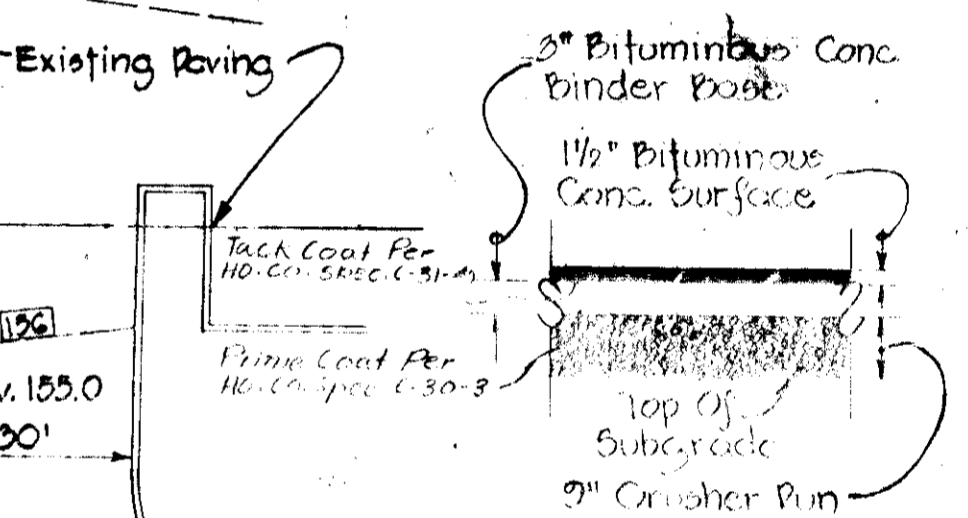 Existing Paving
3" Bituminous Conc.
Binder Base
1½" Bituminous
Conc. Surface
Tack Coat Per
HO. CO. SPEC. C-31-
136
Prime Coat Per
HO. CO. Spec C-30-3
v. 155.0
30'
Top Of
Subgrade
9" Crusher Run